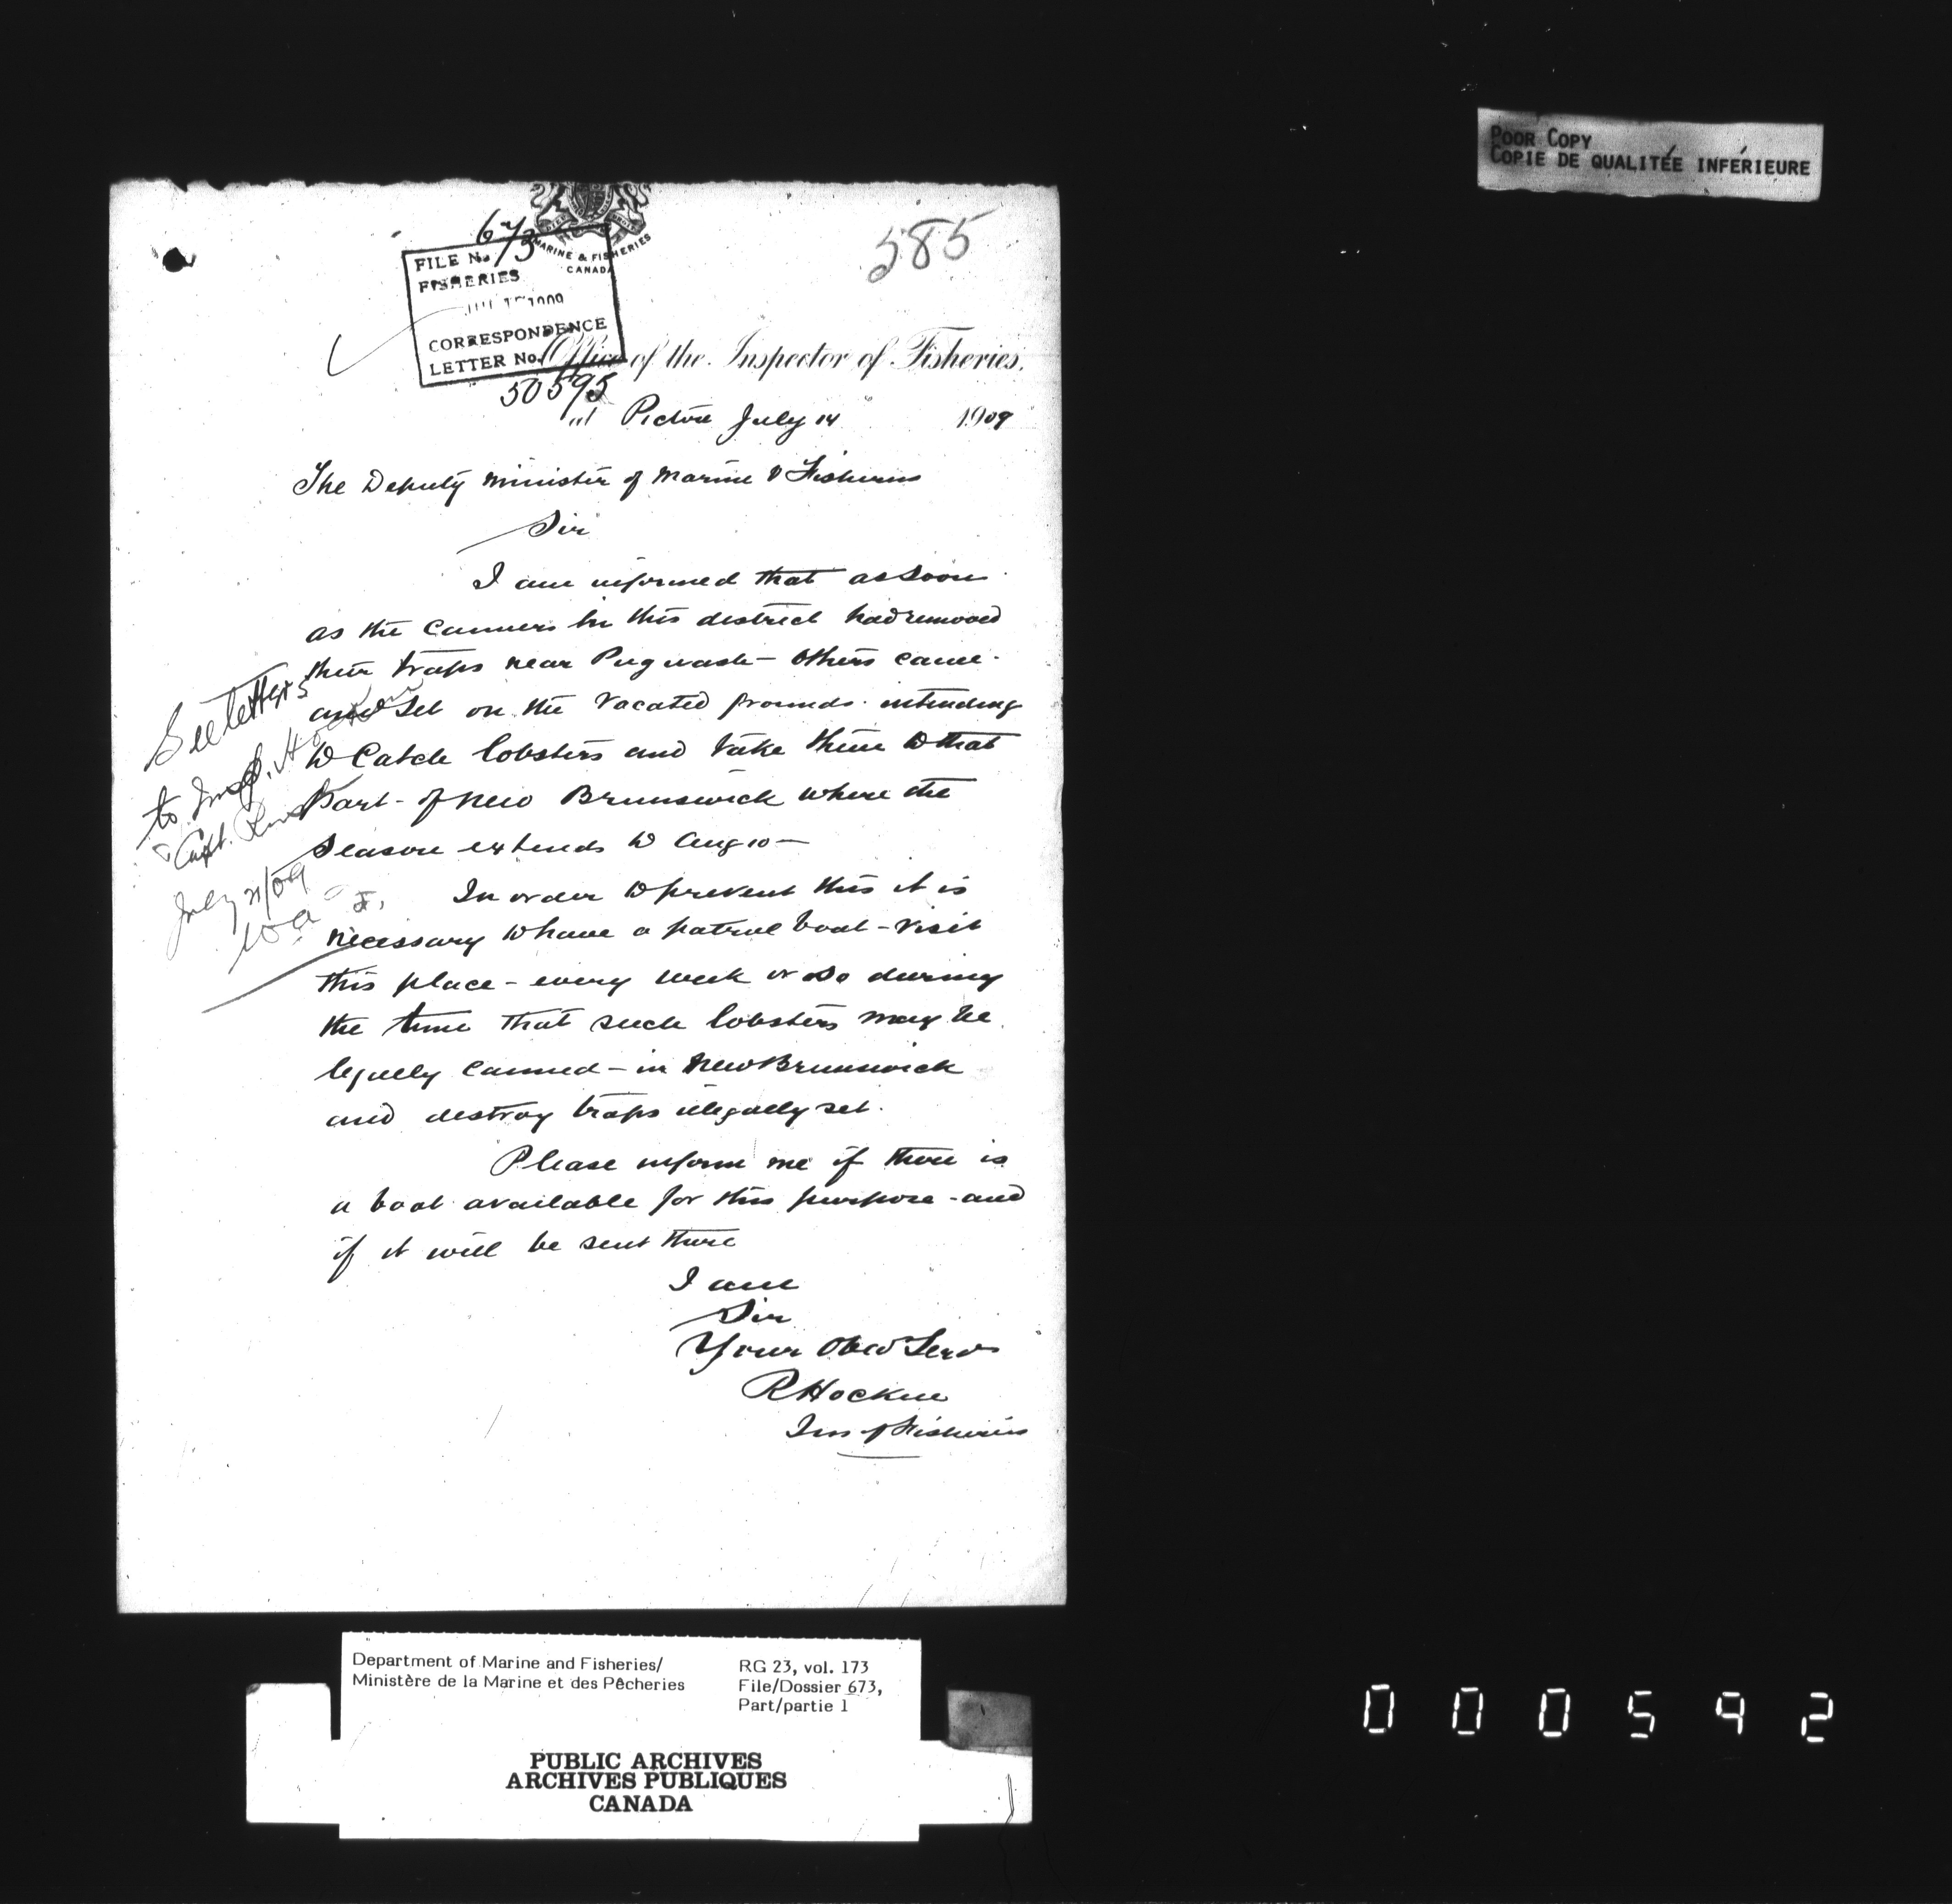 POOR COPY
COPIE DE QUALITÉE INFÉRIEURE
585
673
MARINE & FISHERIES
CANADA
FILE No.
FISHERIES
1909
CORRESPONDENCE
LETTER No.
50595
Office of the Inspector of Fisheries.
at Pictou July 14 1909
The Deputy Minister of Marine & Fisheries
Sir
I am informed that as soon
as the canners in this district had removed
their traps near Pugwash - others came
and set on the vacated grounds intending
to catch lobsters and take them to that
part - of New Brunswick where the
season extends to Aug 10 -
In order to prevent this it is
necessary to have a patrol boat - visit
this place - every week or so during
the time that such lobsters may be
legally canned - in New Brunswick
and destroy traps illegally set.
Please inform me if there is
a boat available for this purpose - and
if it will be sent there
I am
Sir
Your Obed Serv
R Hockin
Ins of Fisheries
See letters
to Insp. Hockin
& Capt.
July 21/09
Department of Marine and Fisheries/
Ministère de la Marine et des Pêcheries
RG 23, vol. 173
File/Dossier 673,
Part/partie 1
PUBLIC ARCHIVES
ARCHIVES PUBLIQUES
CANADA
000592